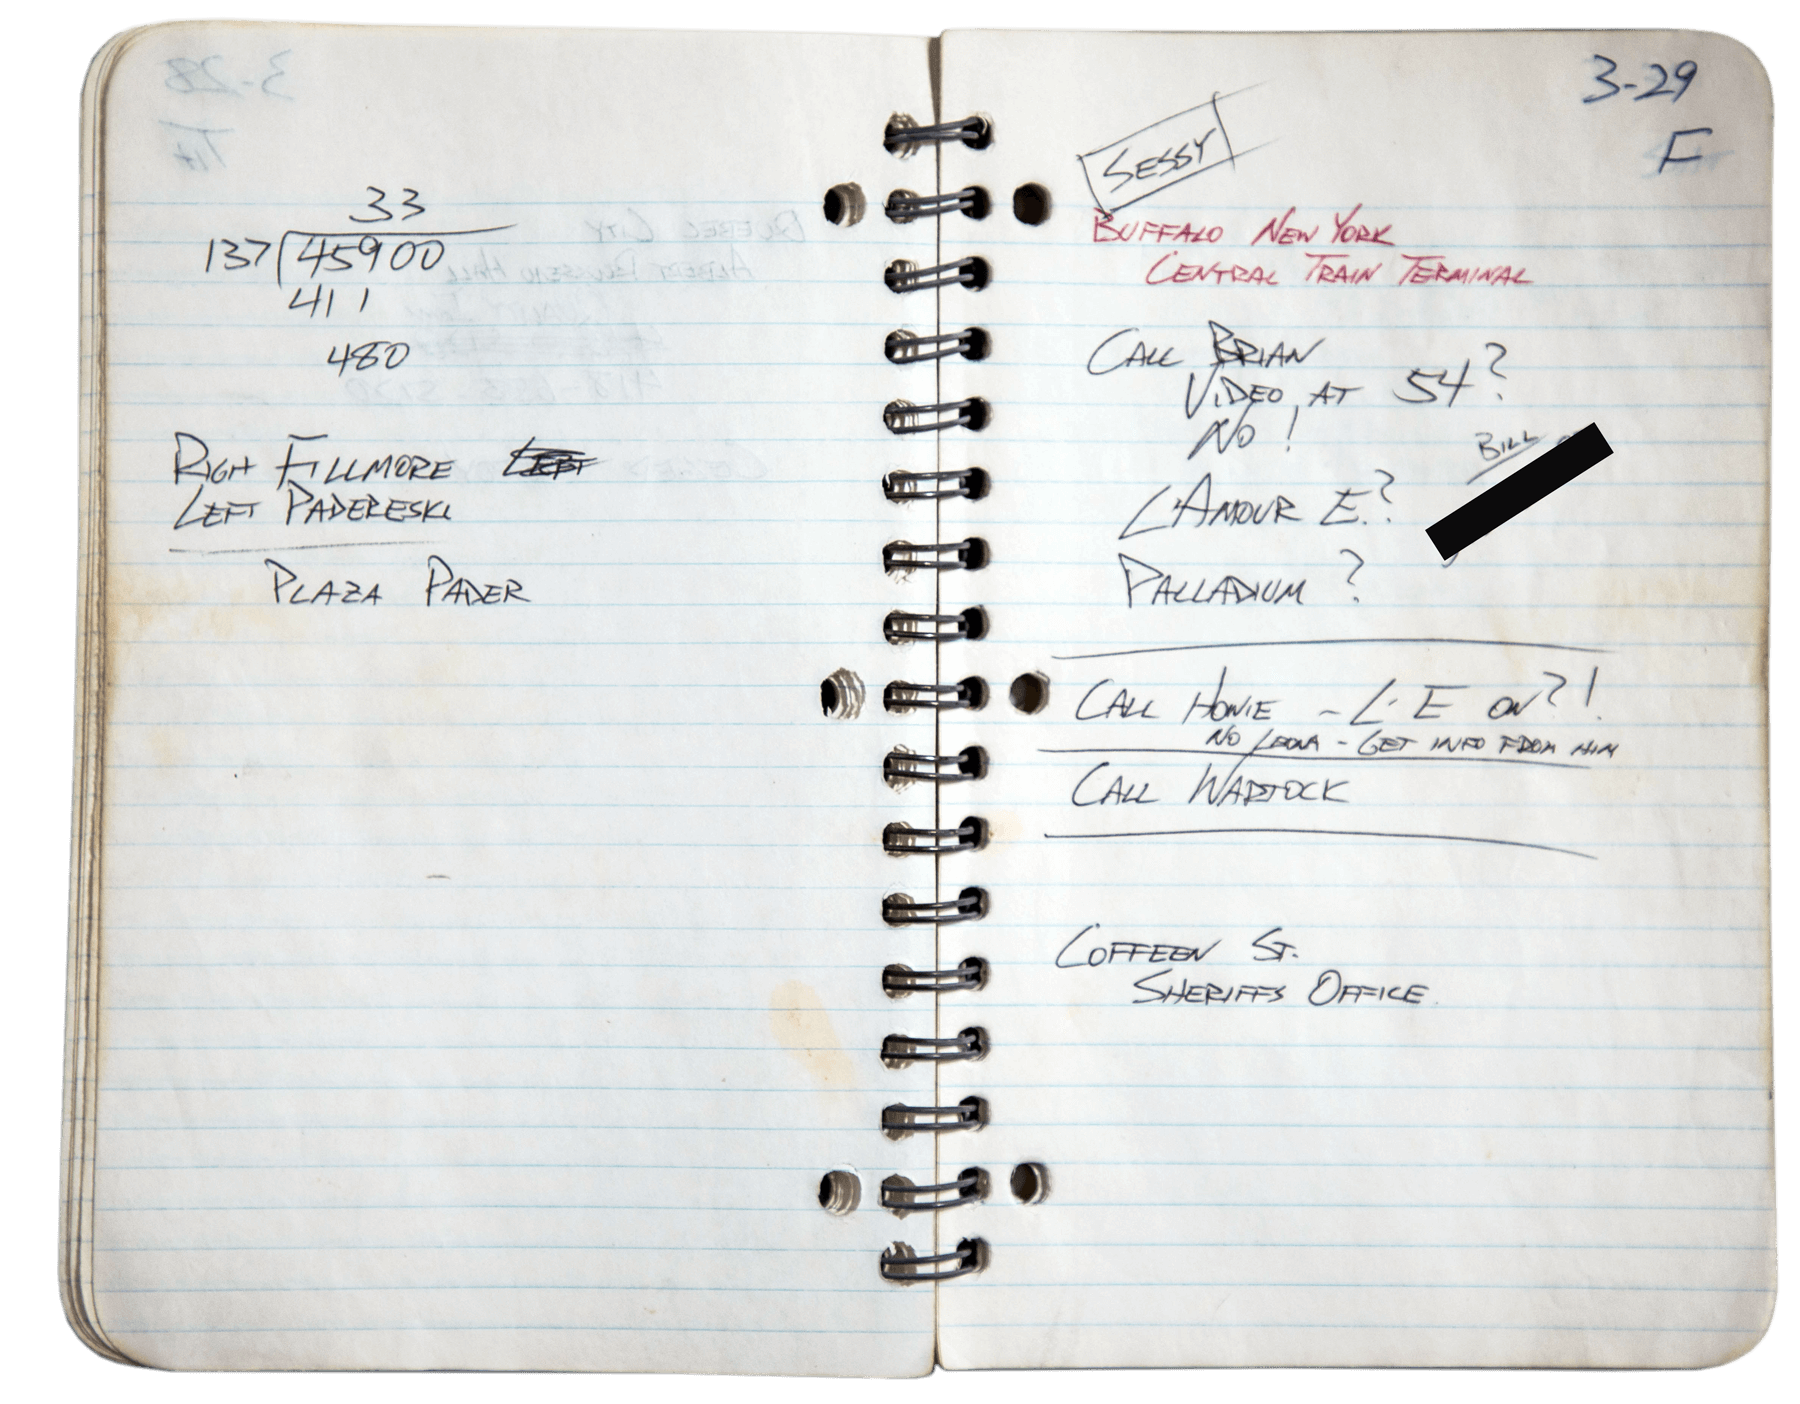 33
137 45900
411
480
RIGH FILLMORE
LEFT PADERESKI
PLAZA PADER
3-29
F
SESSY
BUFFALO NEW YORK
CENTRAL TRAIN TERMINAL
CALL BRIAN
VIDEO AT 54?
NO!
BILL
L'AMOUR E.?
PALLADIUM?
CALL HOWIE - L. E ON?!
NO LEONA - GET INFO FROM HIM
CALL WARTOCK
COFFEEN ST.
SHERIFFS OFFICE.